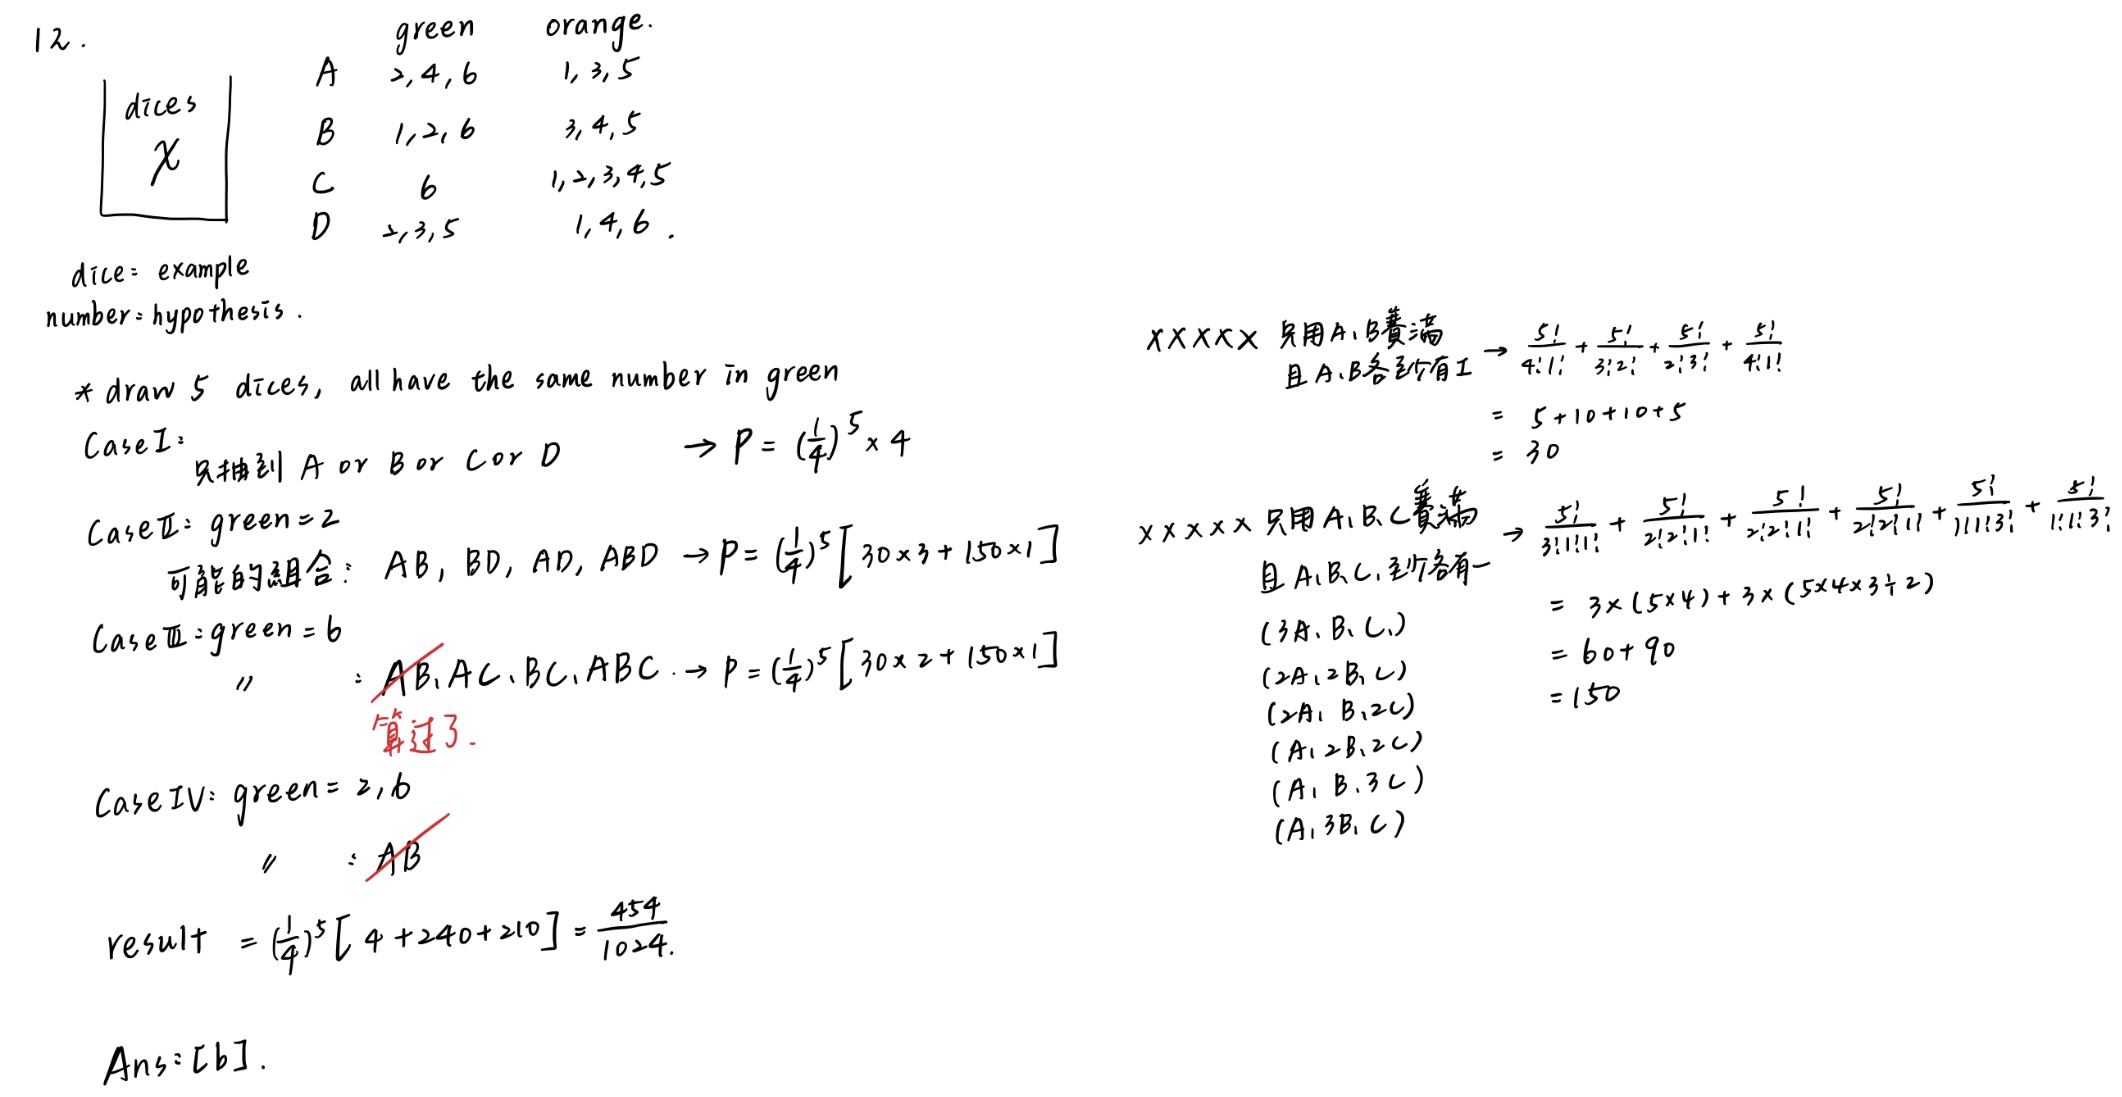 12.
green orange.
A 2,4,6 1,3,5
B 1,2,6 3,4,5
C 6 1,2,3,4,5
D 2,3,5 1,4,6.
dices
x
dice: example
number: hypothesis.
* draw 5 dices, all have the same number in green
Case I:
只抽到 A or B or C or D → P = (1/4)^5 × 4
Case II: green = 2
可能的組合: AB, BD, AD, ABD → P = (1/4)^5 [30×3 + 150×1]
Case III: green = 6
〃 : AB、AC、BC、ABC. → P = (1/4)^5 [30×2 + 150×1]
算过了.
Case IV: green = 2,6
〃 : AB
result = (1/4)^5 [4 + 240 + 210] = 454/1024.
Ans: [b].
XXXXX 只用A、B賽滿
且A、B各至少有I → 5!/4!1! + 5!/3!2! + 5!/2!3! + 5!/4!1!
= 5+10+10+5
= 30
XXXXX 只用A、B、C賽滿 → 5!/3!1!1! + 5!/2!2!1! + 5!/2!2!1! + 5!/2!2!1! + 5!/1!1!3! + 5!/1!1!3!
且A、B、C、至少各有一
= 3×(5×4) + 3×(5×4×3÷2)
= 60+90
= 150
(3A、B、C、)
(2A、2B、C)
(2A、B、2C)
(A、2B、2C)
(A、B、3C)
(A、3B、C)